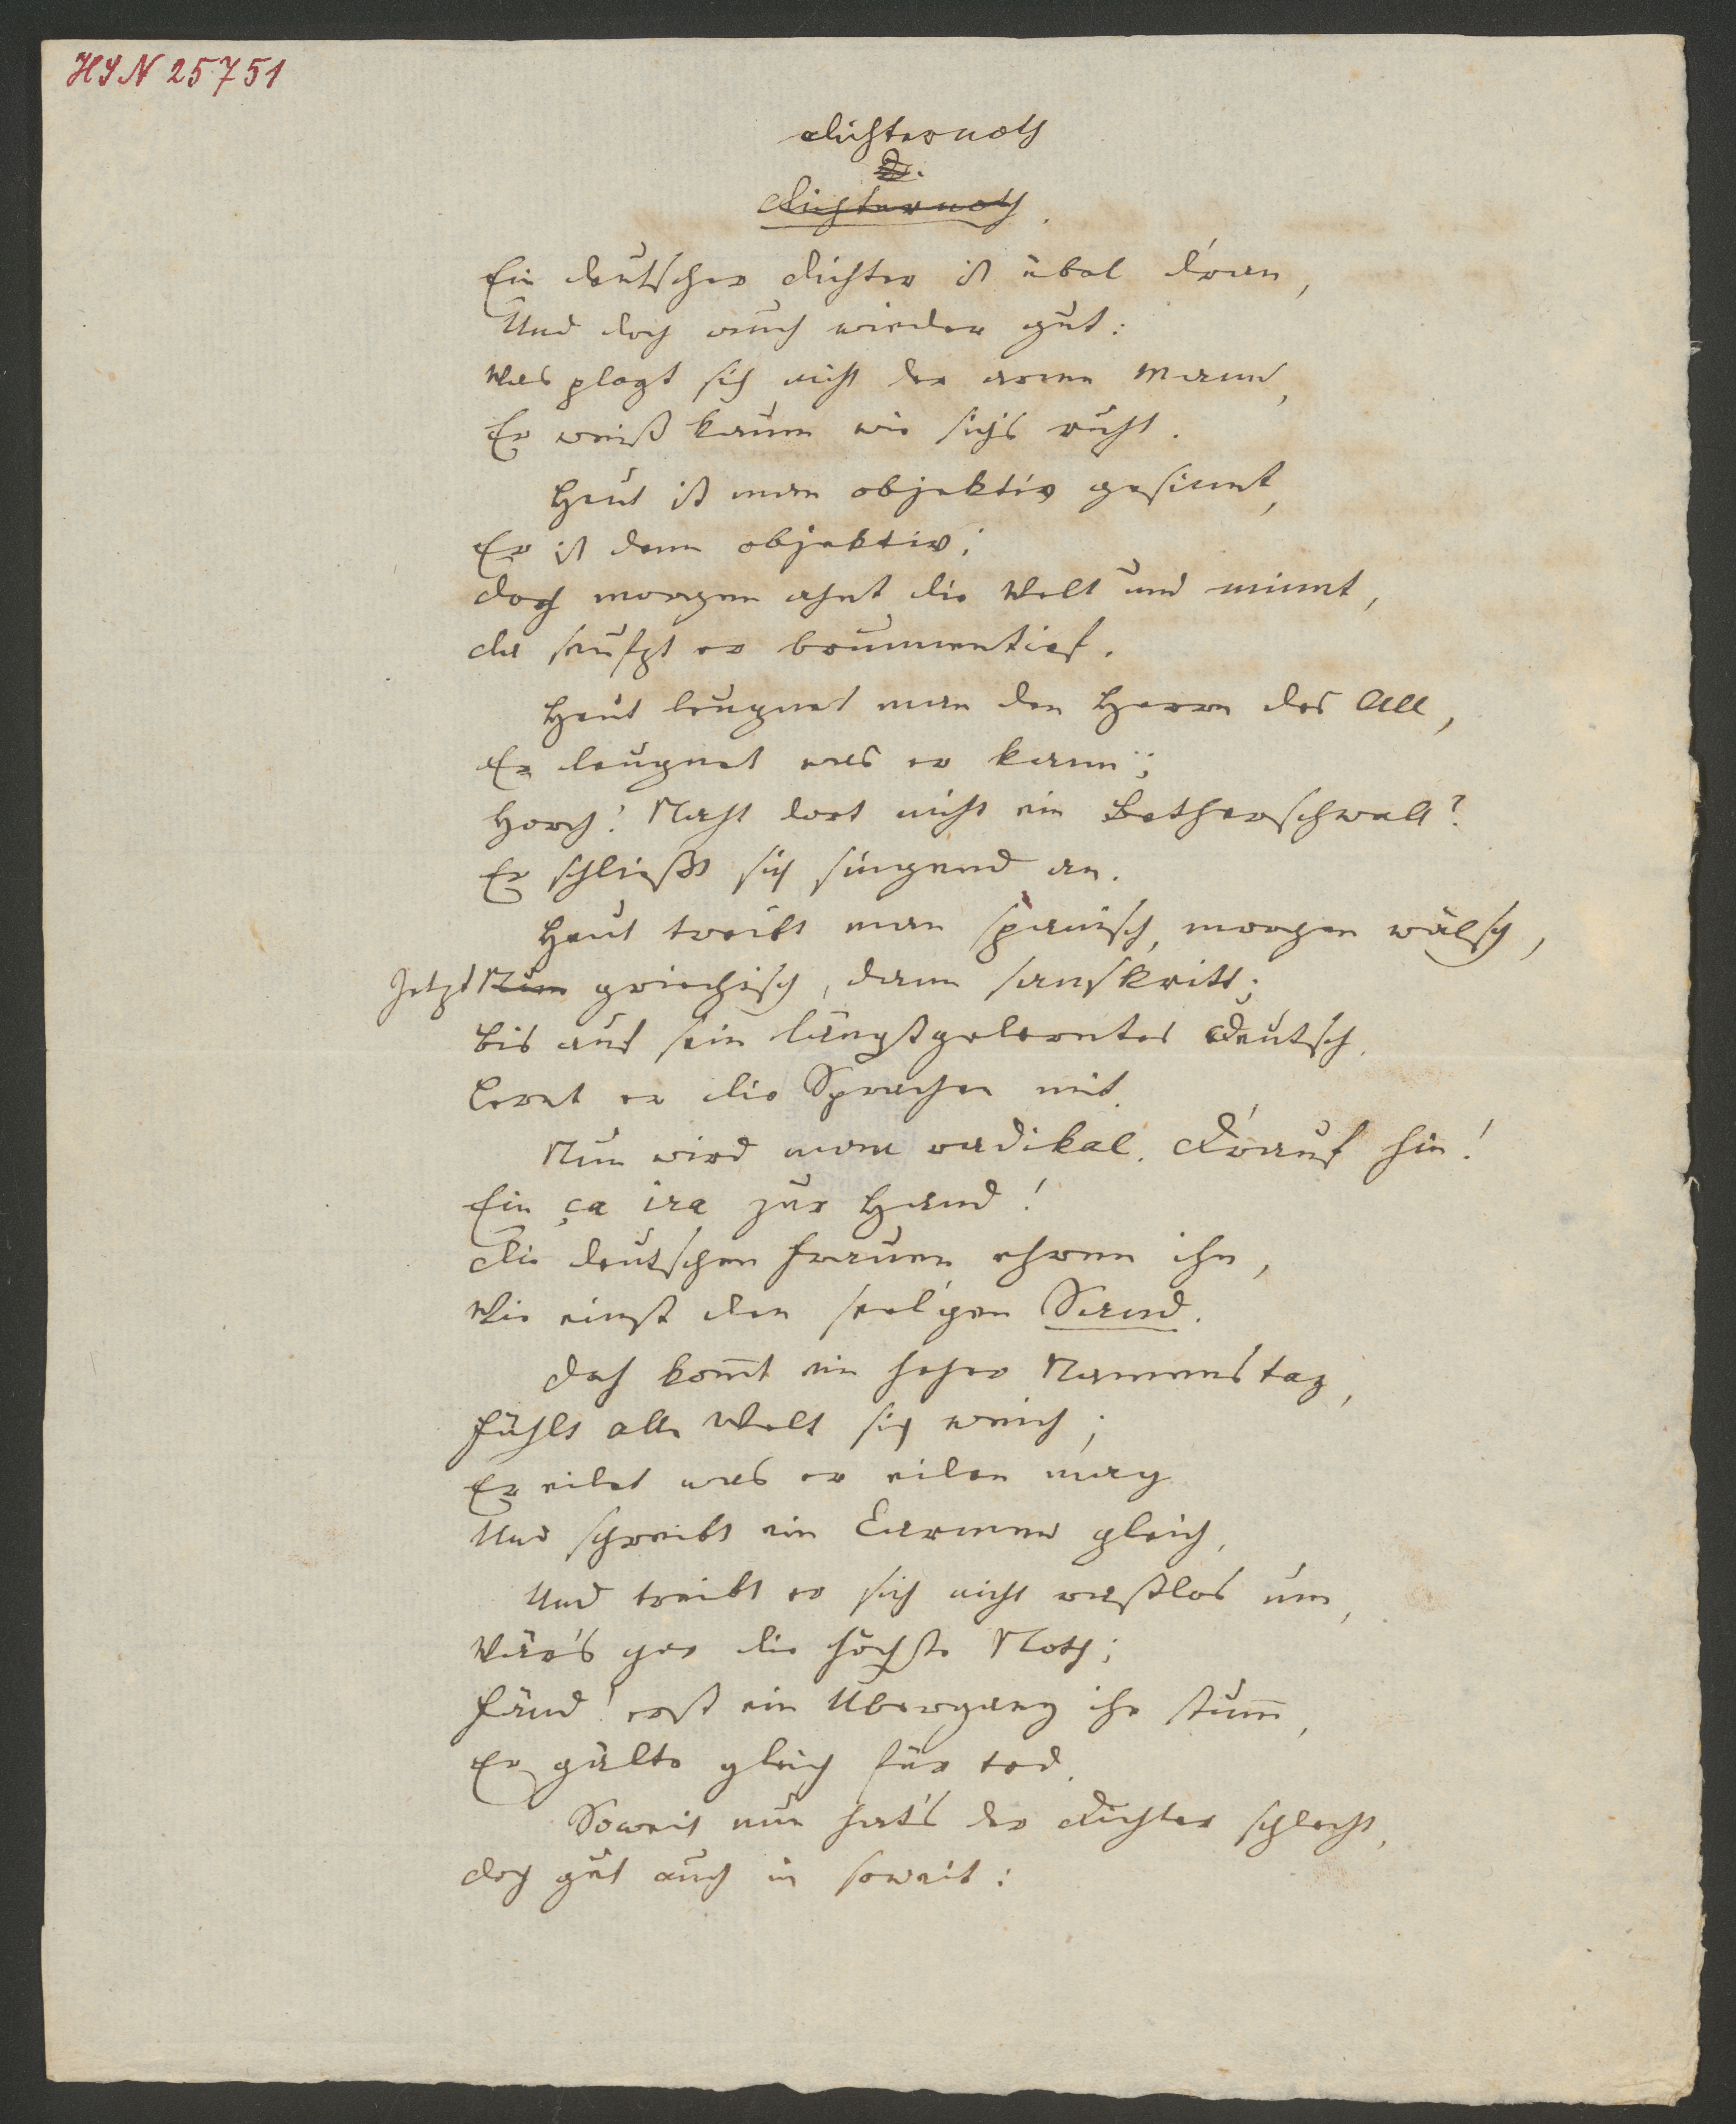 HIN 25751
Dichternoth
2.
Dichternoth.
Ein deutscher Dichter ist übel d'ran,
Und doch auch wieder gut:
Was plagt sich nicht der arme Mann,
Er weiß kaum wie sichs ruht.
Heut ist man objektiv gesinnt,
Er ist denn objektiv;
Doch morgen ahnt die Welt und minnt,
Da seufzt er brunnentief.
Heut leugnet man den Herrn des All,
Er leugnet was er kann;
Horch! Naht dort nicht ein Betherschwall?
Er schließt sich singend an.
Heut treibt man spanisch, morgen wälsch,
Jetzt Nun griechisch, dann sanskritt;
Bis auf sein längstgelerntes Deutsch
Lernt er die Sprachen mit.
Nun wird man radikal. D'rauf hin!
Ein ça ira zur Hand!
Die deutschen Frauen ehren ihn,
Wie einst den seel'gen Sand.
Doch kom̄t ein hoher Namenstag,
Fühlt alle Welt sich weich;
Er eilet was er eilen mag
Und schreibt ein Carmen gleich.
Und treibt er sich nicht rastlos um,
Wär's gar die höchste Noth;
Fänd' erst ein Übergang ihn stum̄,
Er gälte gleich für tod.
Soweit nun hat's der Dichter schlecht,
Doch gut auch in soweit: